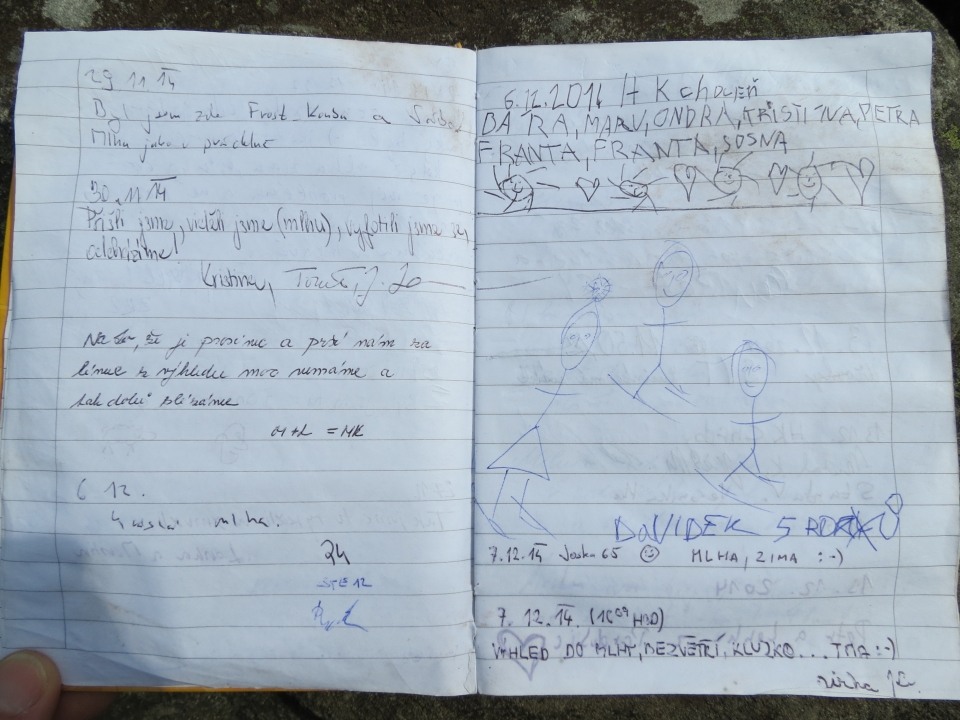 29 11. 14
Byl jsem zde Frost Kouba a
Mlha jako v prádelně
30. 11 14
Přišli jsme, viděli jsme (mlhu), vyfotili jsme se,
odcházíme!
Kristina,
že je prosinec a prší nám za
límec z výhledu moc nemáme a
tak dolů slézáme
M+L = MK
6 12.
mlha.
24
6.12.2014 HK choceň
BÁRA, MARV, ONDRA, KRISTINA, PETRA
FRANTA, FRANTA, SOSNA
DAVIDEK 5 ROKŮ
7.12.14 65 MLHA, ZIMA :-)
7. 12. 14. (16 09 HOD)
VÝHLED DO MLHY, BEZVĚTŘÍ, KLUZKO... TMA :-)